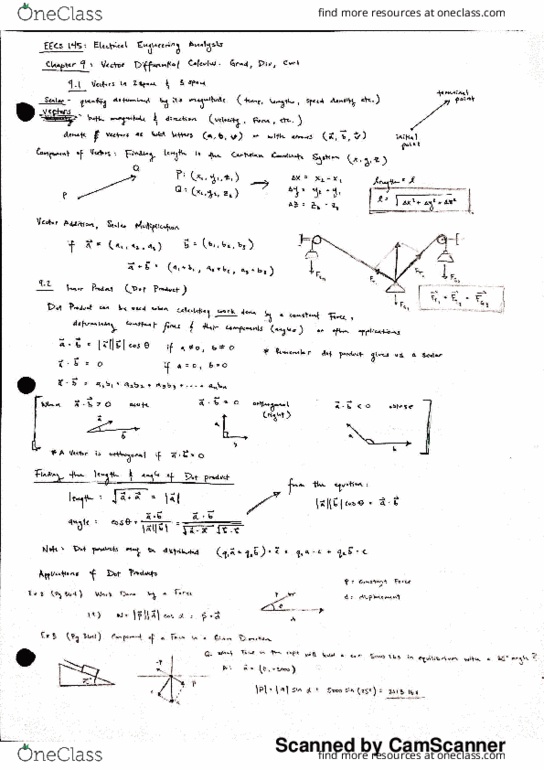 OneClass
find more resources at oneclass.com
EECS 145: Electrical Engineering Analysis
Chapter 9: Vector Differential Calculus. Grad, Div, Curl
9.1 Vectors in 2 space & 3 space
terminal point
Scalar - quantity determined by its magnitude (temp, length, speed, density, etc.)
Vectors - both magnitude & direction (velocity, force, etc.)
denote vectors as bold letters (a, b, v) or with arrows
initial point
Component of Vectors: Finding length in the Cartesian Coordinate System (x, y, z)
P
Q
P: (x₁, y₁, z₁)
Q: (x₂, y₂, z₂)
Δx = x₂ - x₁
Δy = y₂ - y₁
Δz = z₂ - z₁
length = l
l = √Δx² + Δy² + Δz²
Vector Addition, Scalar Multiplication
if a⃗ = (a₁, a₂, a₃) b⃗ = (b₁, b₂, b₃)
a⃗ + b⃗ = (a₁+b₁, a₂+b₂, a₃+b₃)
9.2 Inner Product (Dot Product)
Dot Product can be used when calculating work done by a constant Force,
determining constant forces & their components (angles) or other applications
a⃗ · b⃗ = |a⃗||b⃗| cos θ if a ≠ 0, b ≠ 0
* Remember dot product gives us a scalar
a⃗ · b⃗ = 0 if a = 0, b = 0
a⃗ · b⃗ = a₁b₁ + a₂b₂ + a₃b₃ + ..... aₙbₙ
When a⃗ · b⃗ > 0 acute
a⃗ · b⃗ = 0 orthogonal (right)
a⃗ · b⃗ < 0 obtuse
* A vector is orthogonal if a⃗ · b⃗ = 0
Finding the length & angle of Dot product
length: √a⃗ · a⃗ = |a⃗|
from the equation:
|a⃗||b⃗| cos θ = a⃗ · b⃗
angle: cos θ = a⃗ · b⃗ / |a⃗||b⃗| = a⃗ · b⃗ / √a⃗ · a⃗ √b⃗ · b⃗
Note: Dot products may be distributed (q₁a⃗ + q₂b⃗) · c⃗ = q₁a · c + q₂b · c
Applications of Dot Products
Work Done by a Force
P = Constant Force
d = displacement
Component of a Force in a Given Direction
Q. What force in the rope will hold a car 5000 lbs in equilibrium with a 25° angle?
A: a⃗ = (0, -5000)
|P| = |a| sin α = 5000 sin (25°) = 2113 lbs
Scanned by CamScanner
OneClass
find more resources at oneclass.com